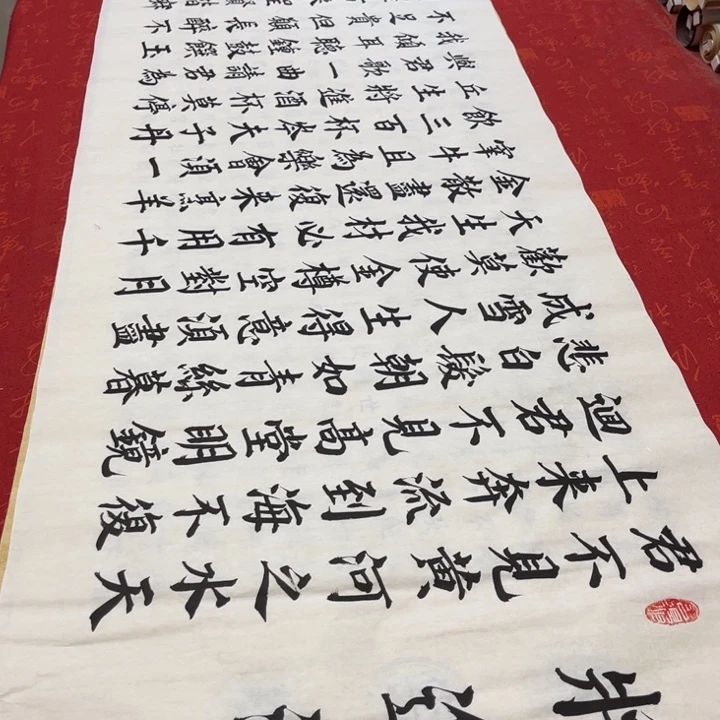 君不見黃河之水天
上來奔流到海不復
迴君不見高堂明鏡
悲白髮朝如青絲暮
成雪人生得意須盡
歡莫使金樽空對月
天生我材必有用千
金散盡還復來烹羊
宰牛且為樂會須一
飲三百杯岑夫子丹
丘生將進酒杯莫停
與君歌一曲請君為
我傾耳聽鍾鼓饌玉
不足貴但願長醉不